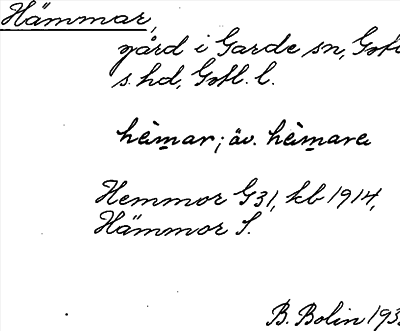 Hämmar,
gård i Garde sn, Gotl
s. hd, Gotl. l.
hèi̯mar; äv. hèi̯marẹ
Hemmor G31, kb 1914,
Hämmor S.
B. Bolin 193